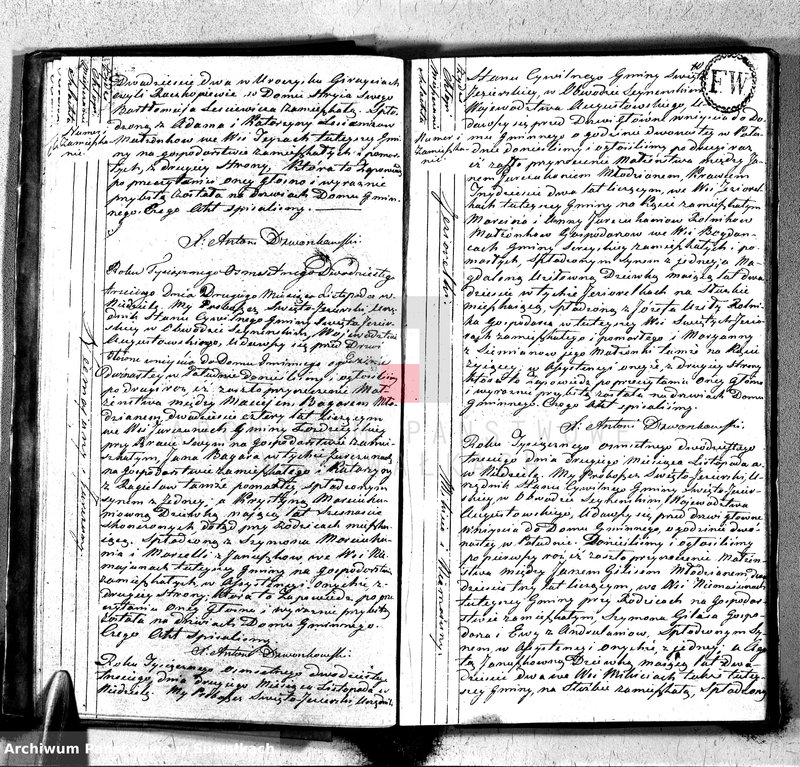 Dwadzieścia dwa w Uroczysku Giraysiach
czyli Raczkopiewie w Domu Stryia Swego
Bartłomieja Lesiewicza zamieszkałą, Spło-
dzoną z Adama i Katarzyny
Małżonków we Wsi tuteyszey Gmi-
ny na gospodarstwie zamieszkałych i pomar-
łych, z drugiey Strony. Która to Zapowiedz
po przeczytaniu oney głosno i wyraznie
przybitą została na drzwiach Domu Gmin-
nego. Czego Akt spisaliśmy.
X. Antoni Dzwonkowski.
Roku Tysiącznego Osmsetnego Dwudziestego
trzeciego Dnia Drugiego Miesiąca Listopada w
Niedzielę. My Proboszcz Swięto-Jezierski Urzę-
dnik Stanu Cywilnego Gminy Swięto-Jezier-
skiey w Obwodzie Seyneńskim, Wojewodztwie
Augustowskiego, Udawszy się przed Drzwi
Głowne wniyscia do Domu Gminnego o godzinie
Dwunastey w Południe Donieśliśmy i ogłosiliśmy
po drugi raz, iż zaszło przyrzeczenie Mał-
żeństwa między Maciejem Bagarem Mło-
dzianem, Dwadzieścia cztery lat liczącym
we Wsi Gminy Łozdzieyskiey
przy Bracie Swym na Gospodarstwie zamie-
szkałym, Jana Bagara w tychże
na gospodarstwie zamieszkałego i Katarzyny
z tamże pomarłey, spłodzonym
synem z jedney; a Krystyną Marciuka-
niowną Dziewką maiącą lat Szesnaście
skończonych dotąd przy Rodzicach mieszka-
iącą, Spłodzoną z Szymona Marciuka-
nia i Maryelli z Januszków we Wsi Nie-
majunach tuteyszey Gminy na gospodarstwie
zamieszkałych, w Assystencyi onychże z
drugiey strony. Która to Zapowiedz po prze-
czytaniu Oney głosno i wyraznie przybitą
została na drzwiach Domu Gminnego.
Czego Akt Spisaliśmy
X. Antoni Dzwonkowski.
Roku Tysiącznego Osmsetnego dwudziestego
trzeciego dnia drugiego Miesiąca Listopada w
Niedzielę My Proboszcz Swięto-Jezierski Urzędnik
Niemajuny i Jurszuny
Numer
zamieszka-
nia
40
FW
Stanu Cywilnego Gminy Swięto-
Jezierskiey, w Obwodzie Seynenskim
Wojewodztwa Augustowskiego, U-
dawszy się przed Drzwi głowne wniyscia do Do-
mu Gminnego o godzinie Dwunastey w Połu-
dnie donieśliśmy i ogłosiliśmy po drugi raz
iż zaszło przyrzeczenie Małżeństwa między Ja-
nem Jurczukoniem Młodzianem, Krawcem
Trzydzieści dwa lat liczącym, we Wsi Jeziorel-
kach tuteyszey Gminy na Kącie zamieszkałym
Marcina i Anny Jurczukaniow Rolnikow
Małżonkow Gospodarzow we Wsi Bogdan-
cach Gminy Sereyskiey zamieszkałych i po-
marłych, Spłodzonym Synem z jedney; a Ma-
gdaleną Uzitowną Dziewką maiącą lat dwa-
dzieścia w tychże Jeziorelkach na Służbie
mieszkaiącą, spłodzoną z Józefa Uzity Rolni-
ka Gospodarza w tuteyszey Wsi Swiętych Jezio-
rach zamieszkałego i pomarłego i Maryanny
z Simnianow jego Małżonki tamże na Kącie
żyiącey, w Assystencyi oneyże, z drugiey Strony
Która to Zapowiedz po przeczytaniu Oney głosno
i wyraznie przybitą została na drzwiach Domu
Gminnego. Czego Akt spisaliśmy.
X. Antoni Dzwonkowski.
Roku Tysiącznego osmsetnego dwudziestego
trzeciego dnia drugiego Miesiąca Listopada
w Niedzielę. My Proboszcz Swięto-Jezierski, U-
rzędnik Stanu Cywilnego Gminy Swięto-Jezier-
skiey, w Obwodzie Seynenskim Wojewodztwa
Augustowskiego, Udawszy się przed drzwi głowne
wniyscia do Domu Gminnego o godzinie dwu-
nastey w Południe. Donieśliśmy i ogłosiliśmy
po pierwszy raz iż zaszło przyrzeczenie Małżeń-
stwa między Janem Gilisem Młodzianem, dwa-
dzieścia lat liczącym, we Wsi Niemaiunach
tuteyszey Gminy przy Rodzicach na Gospodar-
stwie zamieszkałym, Szymona Gilasa Gospo-
darza i Ewy z Andrulaniow, Spłodzonym Sy-
nem, w Assystencyi onychże, z jedney; a Aga-
tą Januszkowną Dziewką maiącą lat dwa-
dzieścia dwa we Wsi Mikiciach także tutey-
szey Gminy, na Służbie zamieszkałą, Spłodzoną
Numer
zamieszka-
nia
Jeziorelki
Archiwum Państwowe w Suwałkach